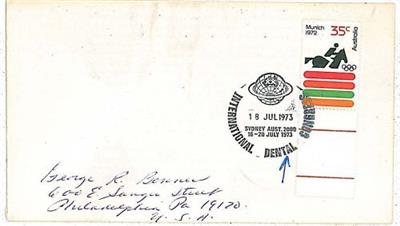 Munich
1972
35c
Australia
INTERNATIONAL DENTAL CONGRESS
18 JUL 1973
SYDNEY AUST. 2000
16-20 JULY 1973
George R.
600 E
Street
Philadelphia Pa 19120.
U. S. A.